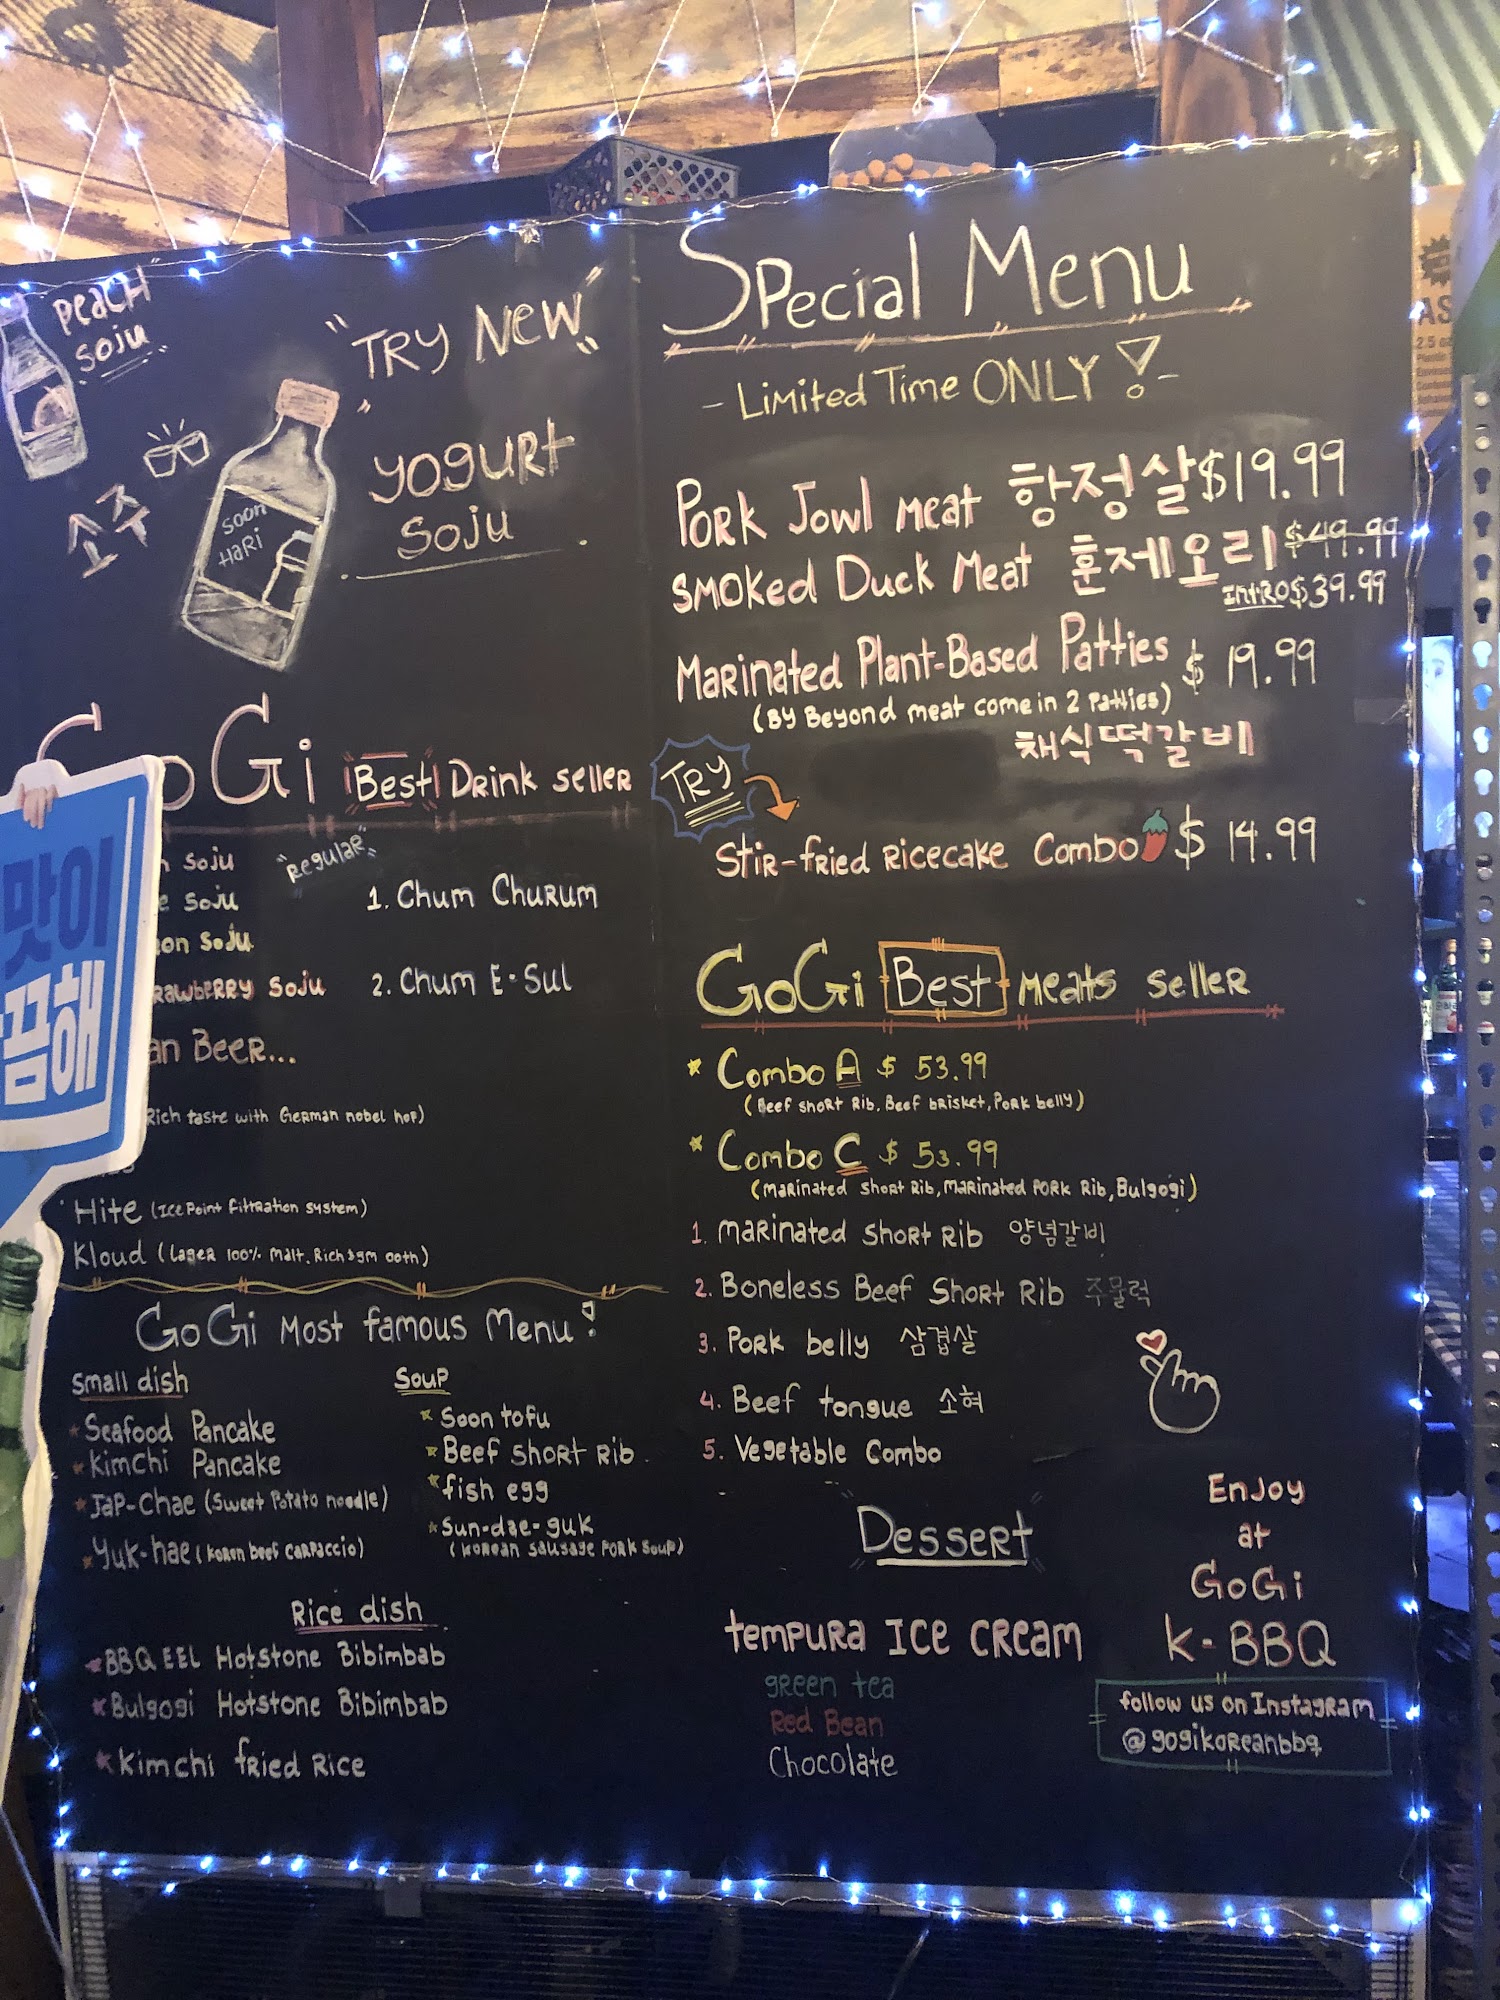 Peach
Soju
"TRY New"
Yogurt
Soju
소주
Soon
Hari
GoGi Best Drink Seller
Soju
"Regular"
Soju
1. Chum Churum
Soju
Soju
2. Chum E-Sul
Beer...
Rich taste with German nobel hop)
Hite (Ice Point filtration system)
Kloud (Lager 100% Malt. Rich
맛이
꿈해
GoGi Most famous Menu!
Small dish
* Seafood Pancake
* Kimchi Pancake
* Jap-Chae (Sweet Potato noodle)
* Yuk-hae (Koren beef carpaccio)
Soup
* Soon tofu
* Beef Short Rib
* fish egg
* Sun-dae-guk
(Korean sausage Pork Soup)
Rice dish
* BBQ EEL Hotstone Bibimbab
* Bulgogi Hotstone Bibimbab
* Kimchi fried Rice
Special Menu
- Limited Time ONLY! -
Pork Jowl meat 항정살 $19.99
Smoked Duck Meat 훈제오리 $49.99
Intro $39.99
Marinated Plant-Based Patties $19.99
(By Beyond meat come in 2 Patties)
채식떡갈비
TRY
Stir-fried Ricecake Combo $14.99
GoGi Best Meats Seller
* Combo A $53.99
(Beef short Rib, Beef brisket, Pork belly)
* Combo C $53.99
(Marinated short Rib, Marinated Pork Rib, Bulgogi)
1. Marinated Short Rib 양념갈비
2. Boneless Beef Short Rib 주물럭
3. Pork belly 삼겹살
4. Beef tongue 소혀
5. Vegetable Combo
Dessert
tempura Ice cream
green tea
Red Bean
Chocolate
Enjoy
at
GoGi
K-BBQ
follow us on Instagram
@gogikoreanbbq
AS